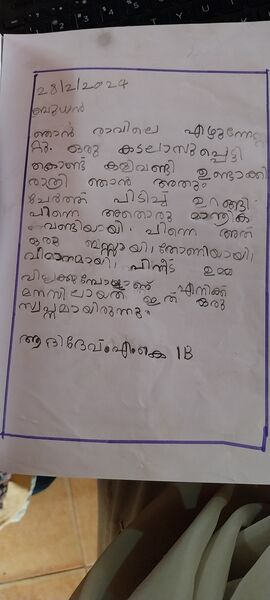 28/2/2024
ബുധൻ
ഞാൻ രാവിലെ എഴുന്നേ
റ്റു. ഒരു കടലാസുപ്പെട്ടി
കൊണ്ട് കളിവണ്ടി ഉണ്ടാക്കി
രാത്രി ഞാൻ അതും
ചേർത്ത് പിടിച്ച് ഉറങ്ങി.
പിന്നെ അതൊരു മാന്ത്രിക
വണ്ടിയായി. പിന്നെ അത്
ഒരു ബസ്സായി, തോണിയായി,
വിമാനമായി. പിന്നീട് ഉമ്മ
വിളിക്കുമ്പോളാണ് എനിക്ക്
മനസിലായത് ഇത് ഒരു
സ്വപ്നമായിരുന്നു.
ആദിദേവ്.എം.കെ 1B